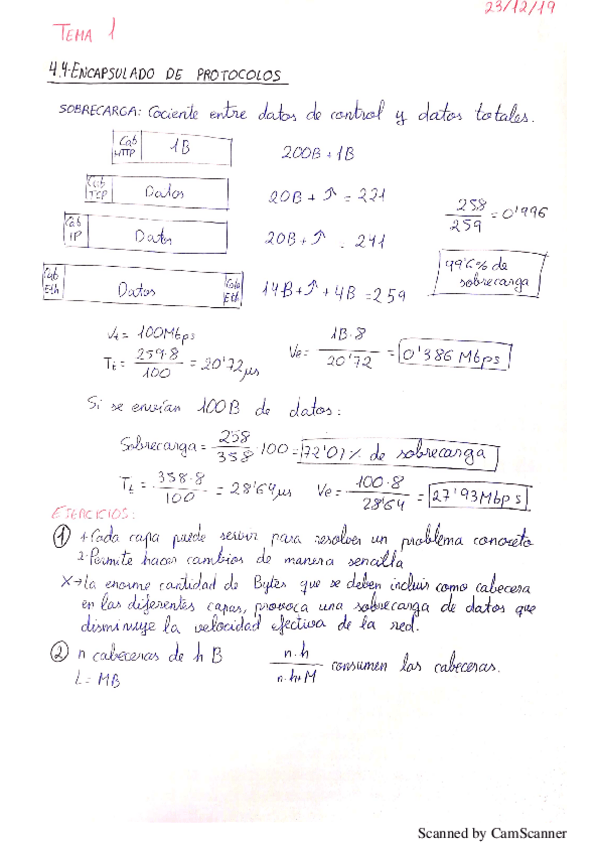 23/12/19
TEMA 1
4.4-ENCAPSULADO DE PROTOCOLOS
SOBRECARGA: Cociente entre datos de control y datos totales.
Cab HTTP 1B 200B + 1B
Cab TCP Datos 20B + ↗ = 221
Cab IP Datos 20B + ↗ = 241
258/259 = 0'996
99'6% de sobrecarga
Cab Eth Datos Cola Eth 14B + ↗ + 4B = 259
Vt = 100Mbps
Tt = 259·8/100 = 20'72 μs Ve = 1B·8/20'72 = 0'386 Mbps
Si se envían 100B de datos:
Sobrecarga = 258/358 · 100 = 72'07% de sobrecarga
Tt = 358·8/100 = 28'64 μs Ve = 100·8/28'64 = 27'93 Mbps
EJERCICIOS:
① + Cada capa puede servir para resolver un problema concreto
2. Permite hacer cambios de manera sencilla
X → La enorme cantidad de Bytes que se deben incluir como cabecera
en las diferentes capas, provoca una sobrecarga de datos que
disminuye la velocidad efectiva de la red.
② n cabeceras de h B n.h/n.h+M consumen las cabeceras.
L = MB
Scanned by CamScanner